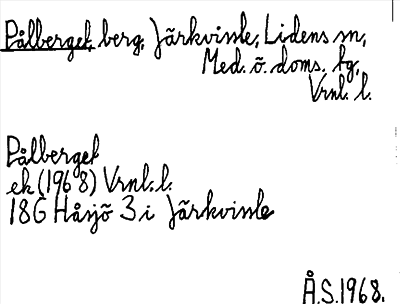 Pålberget, berg, Järkvissle, Lidens sn,
Med. ö. doms. tg,
Vrnl. l.
Pålberget
ek (1968) Vrnl. l.
18G Håsjö 3 i Järkvissle
Å.S. 1968.